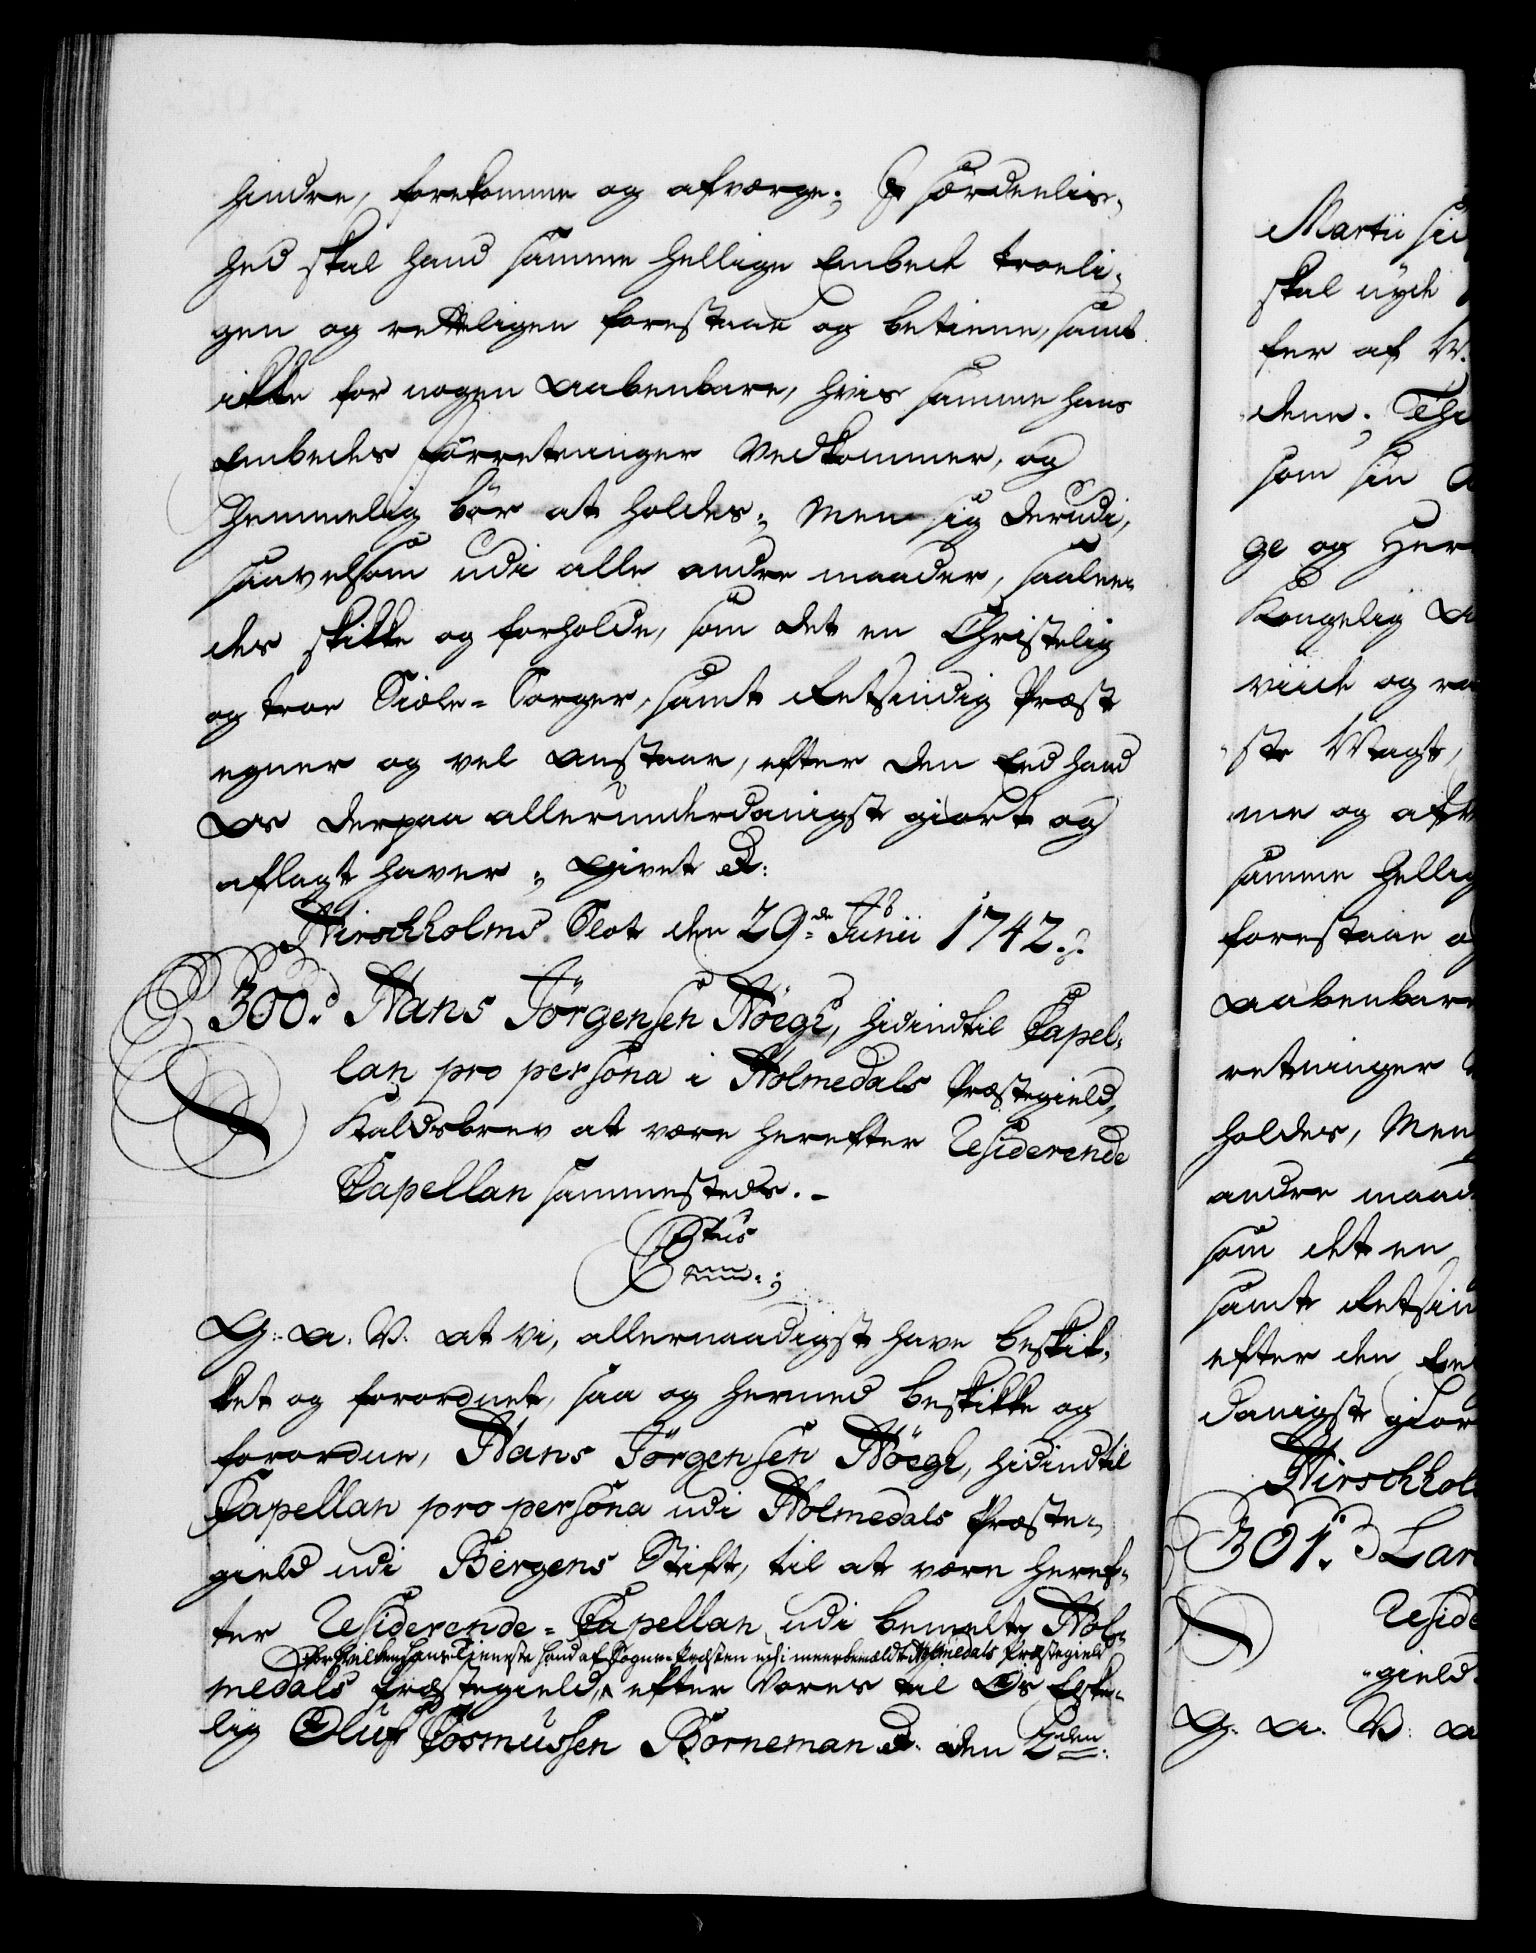 hindre, forekomme og afværge; J særdeelis-
hed skal hand samme hellige Embede troeli-
gen og retteligen forestaae og betiene, samt
ikke for nogen aabenbare, hvis samme hans
Embedes forretninger vedkommer, og
hemmelig bør at holdes; Men sig derudi,
saavelsom udi alle andre maader, saalee-
des skikke og forholde, som det en Christelig
og troe Siæle-Sørger, samt Retsindig Præst
egner og vel anstaar, efter den Eed hand
Os derpaa allerunderdanigst giort og
aflagt haver; Givet &:
Hirschholms Slot den 29de Junii 1742.
300. Hans Jörgensen Höegh, hidindtil Capel-
lan pro persona i Holmedals Præstegield,
Kaldsbrev at være herefter Residerende
Capellan sammesteds.
G: A: V: at Vi, allernaadigst have beskik-
ket og forordnet, saa og hermed beskikke og
forordne, Hans Jörgensen Höegh, hidindtil
Capellan pro persona udi Holmedals Præste-
gield udi Bergens Stift, til at være heref-
ter Residerende-Capellan udi bemelte Hol-
for hvilken hans Tieneste hand af Sogne-Præsten udi meerbemeldte Holmedals Præstegield
medals Præstegield, efter Vores til Os Elske-
lig Oluf Rosmussen Borneman &. den 2den
Martii
skal nyde
fer af
dene;
som sin
ge og Her
Kongelig
viide og
ste Magt,
me og afv
samme hellig
forestaae o
aabenbare
retninger
holdes, Men
andre maad
som det en
samt Retsin
efter den Ee
danigst gior
Hirschhol
301. Lar
Reside
gield
G. A. V: a